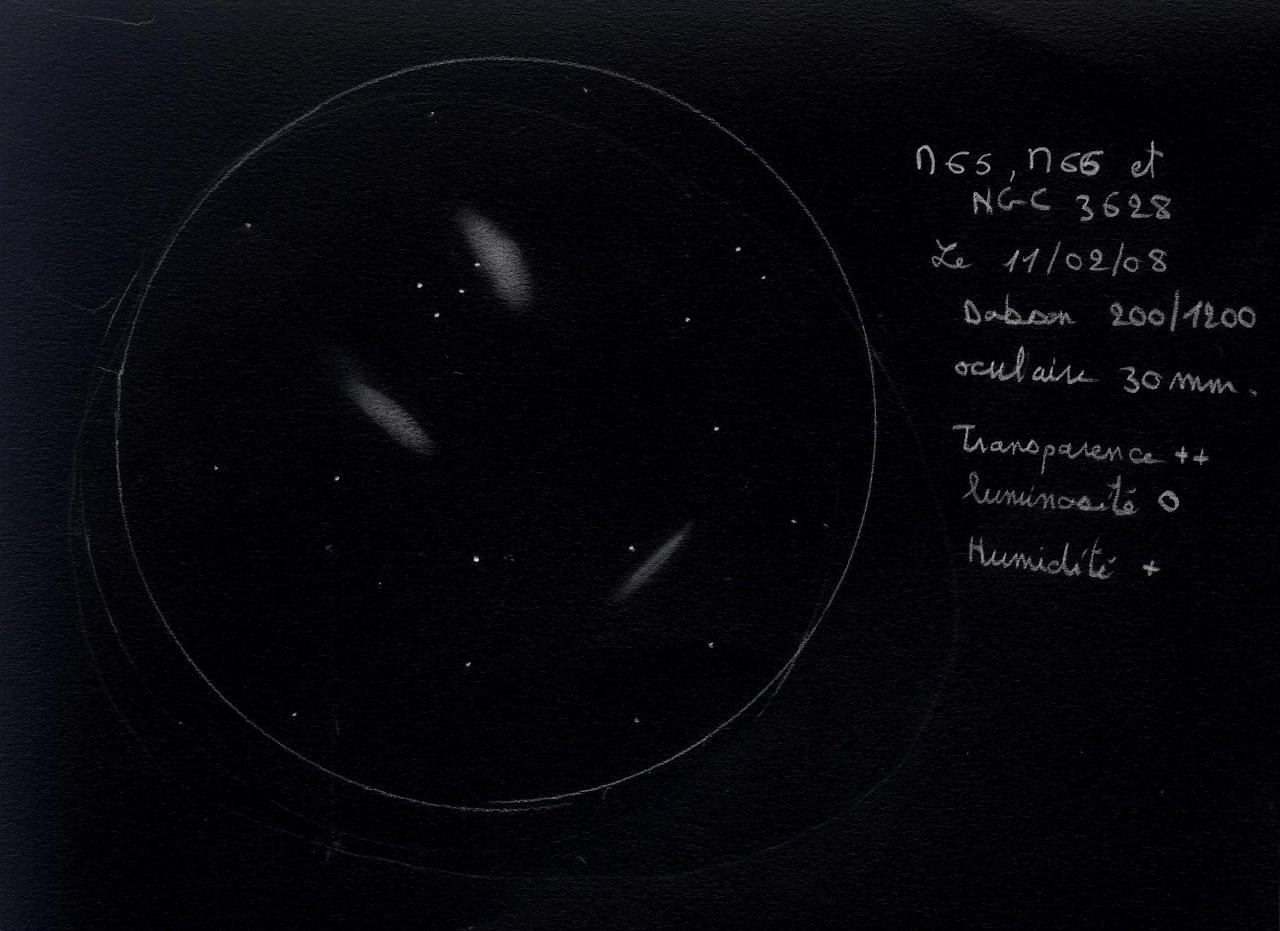 M65, M66 et
NGC 3628
Le 11/02/08
Dobson 200/1200
oculaire 30mm.
Transparence ++
luminosité 0
Humidité +